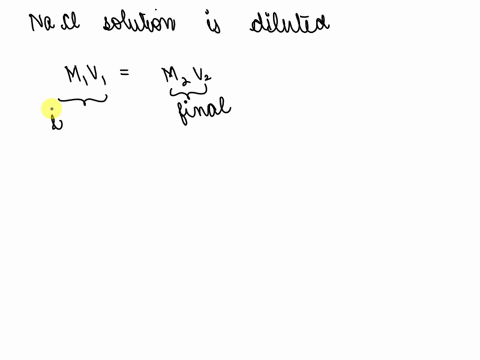 NaCl solution is diluted
M₁V₁ = M₂V₂
final
i